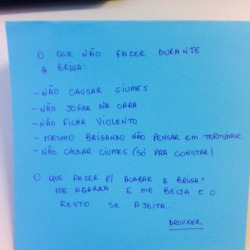 O QUE NÃO FAZER DURANTE
A BRIGA:
- NÃO CAUSAR CIUMES
- NÃO JOGAR NA CARA
- NÃO FICAR VIOLENTO
- MESMO BRIGANDO NÃO PENSAR EM TERMINAR
- NÃO CAUSAR CIUMES (SÓ PRA CONSTAR)
O QUE FAZER P/ ACABAR A BRIGA?
ME AGARRA E ME BEIJA E O
RESTO SE AJEITA...